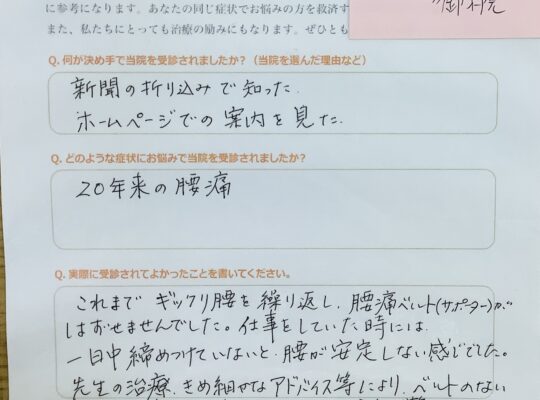 に参考になります。あなたの同じ症状でお悩みの方を救済す
また、私たちにとっても治療の励みにもなります。ぜひとも
御 院
Q. 何が決め手で当院を受診されましたか？（当院を選んだ理由など）
新聞の折り込みで知った.
ホームページでの案内を見た.
Q. どのような症状にお悩みで当院を受診されましたか？
20年来の腰痛
Q. 実際に受診されてよかったことを書いてください。
これまで ギックリ腰を繰り返し、腰痛ベルト(サポーター)が
はずせませんでした。仕事をしていた時には
一日中締めつけていないと、腰が安定しない感じでした。
先生の治療、きめ細かなアドバイス等により、ベルトのない